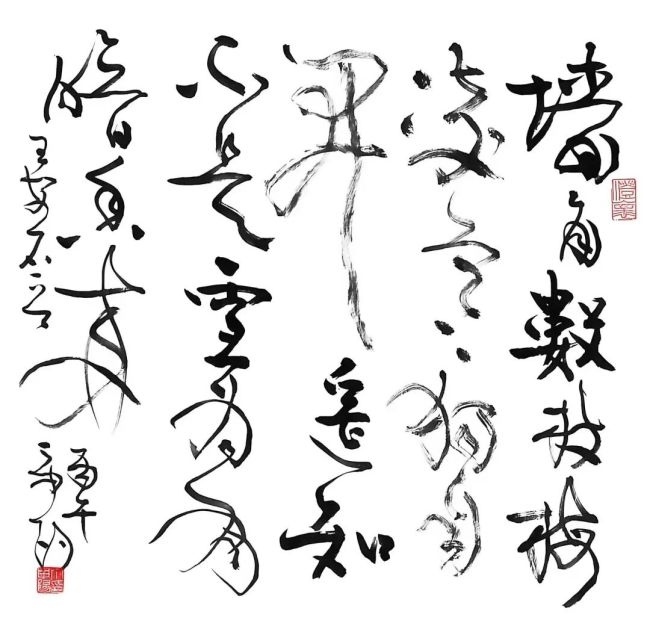 墙角數枝梅
凌寒独自
開遥知
不是雪为有
暗香来
王安石
丙午